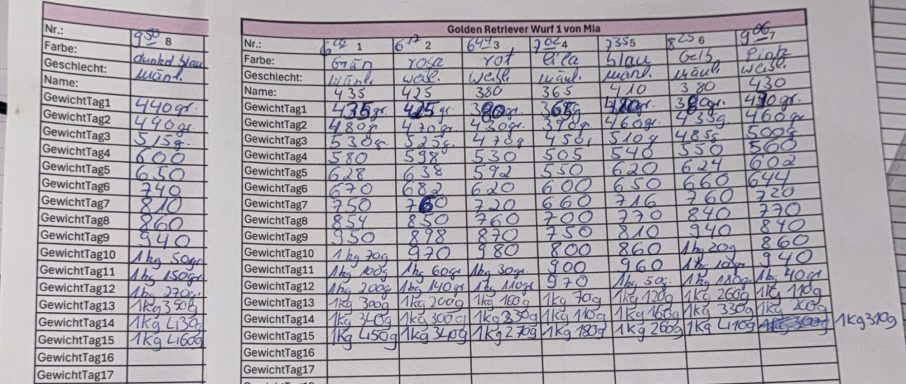 Nr.: 9⁵⁰ 8
Farbe: dunkel blau
Geschlecht: mänl.
Name:
GewichtTag1 440gr.
GewichtTag2 490gr.
GewichtTag3 515g.
GewichtTag4 600
GewichtTag5 650
GewichtTag6 740
GewichtTag7 810
GewichtTag8 860
GewichtTag9 940
GewichtTag10 1kg 50gr
GewichtTag11 1kg 150gr
GewichtTag12 1kg 270gr
GewichtTag13 1kg 350g
GewichtTag14 1kg 430g
GewichtTag15 1kg 460g
GewichtTag16
GewichtTag17
Golden Retriever Wurf 1 von Mia
Nr.: 1 6¹⁷ 2 3 4 5 8²⁵ 6 9⁰⁶ 7
Farbe: Grün rosa rot lila blau Gelb Pink
Geschlecht: mänl. weibl. weibl. mänl. mänl. mänl. weibl.
Name: 435 425 380 365 410 380 430
GewichtTag1 435gr. 425gr.
GewichtTag2 480g 470gr 430gr. 390g 460gr. 435g. 460gr
GewichtTag3 530g 525g. 470g 450g 510g 485g 500g
GewichtTag4 580 598 530 505 540 550 560
GewichtTag5 628 638 592 550 620 624 602
GewichtTag6 670 682 620 600 650 660 644
GewichtTag7 750 760 720 660 716 760 720
GewichtTag8 854 850 760 700 770 840 770
GewichtTag9 950 898 870 750 810 940 840
GewichtTag10 1kg 70g 970 980 800 860 1kg 20g 860
GewichtTag11 1kg 100g 1kg 60gr 1kg 30gr. 900 960 1kg 940
GewichtTag12 1kg 200g 1kg 140gr 1kg 110gr 970 1kg 50g 1kg 180g 1kg 40gr
GewichtTag13 1kg 300g 1kg 200g 1kg 160g 1kg 70g 1kg 120g 1kg 260g 1kg 110g
GewichtTag14 1kg 340g 1kg 300g 1kg 230g 1kg 110g 1kg 160g 1kg 330g 1kg 200g
GewichtTag15 1kg 450g 1kg 340g 1kg 270g 1kg 180g 1kg 260g 1kg 410g 1kg 300g 1kg 310g
GewichtTag16
GewichtTag17